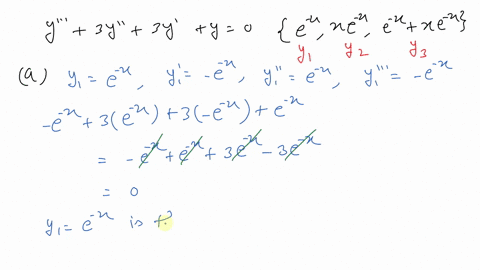 y''' + 3y'' + 3y' + y = 0 {e^{-x}, xe^{-x}, e^{-x} + xe^{-x}}
y₁ y₂ y₃
(a) y₁ = e^{-x}, y₁' = -e^{-x}, y₁'' = e^{-x}, y₁''' = -e^{-x}
-e^{-x} + 3(e^{-x}) + 3(-e^{-x}) + e^{-x}
= -e^{-x} + e^{-x} + 3e^{-x} - 3e^{-x}
= 0
y₁ = e^{-x} is